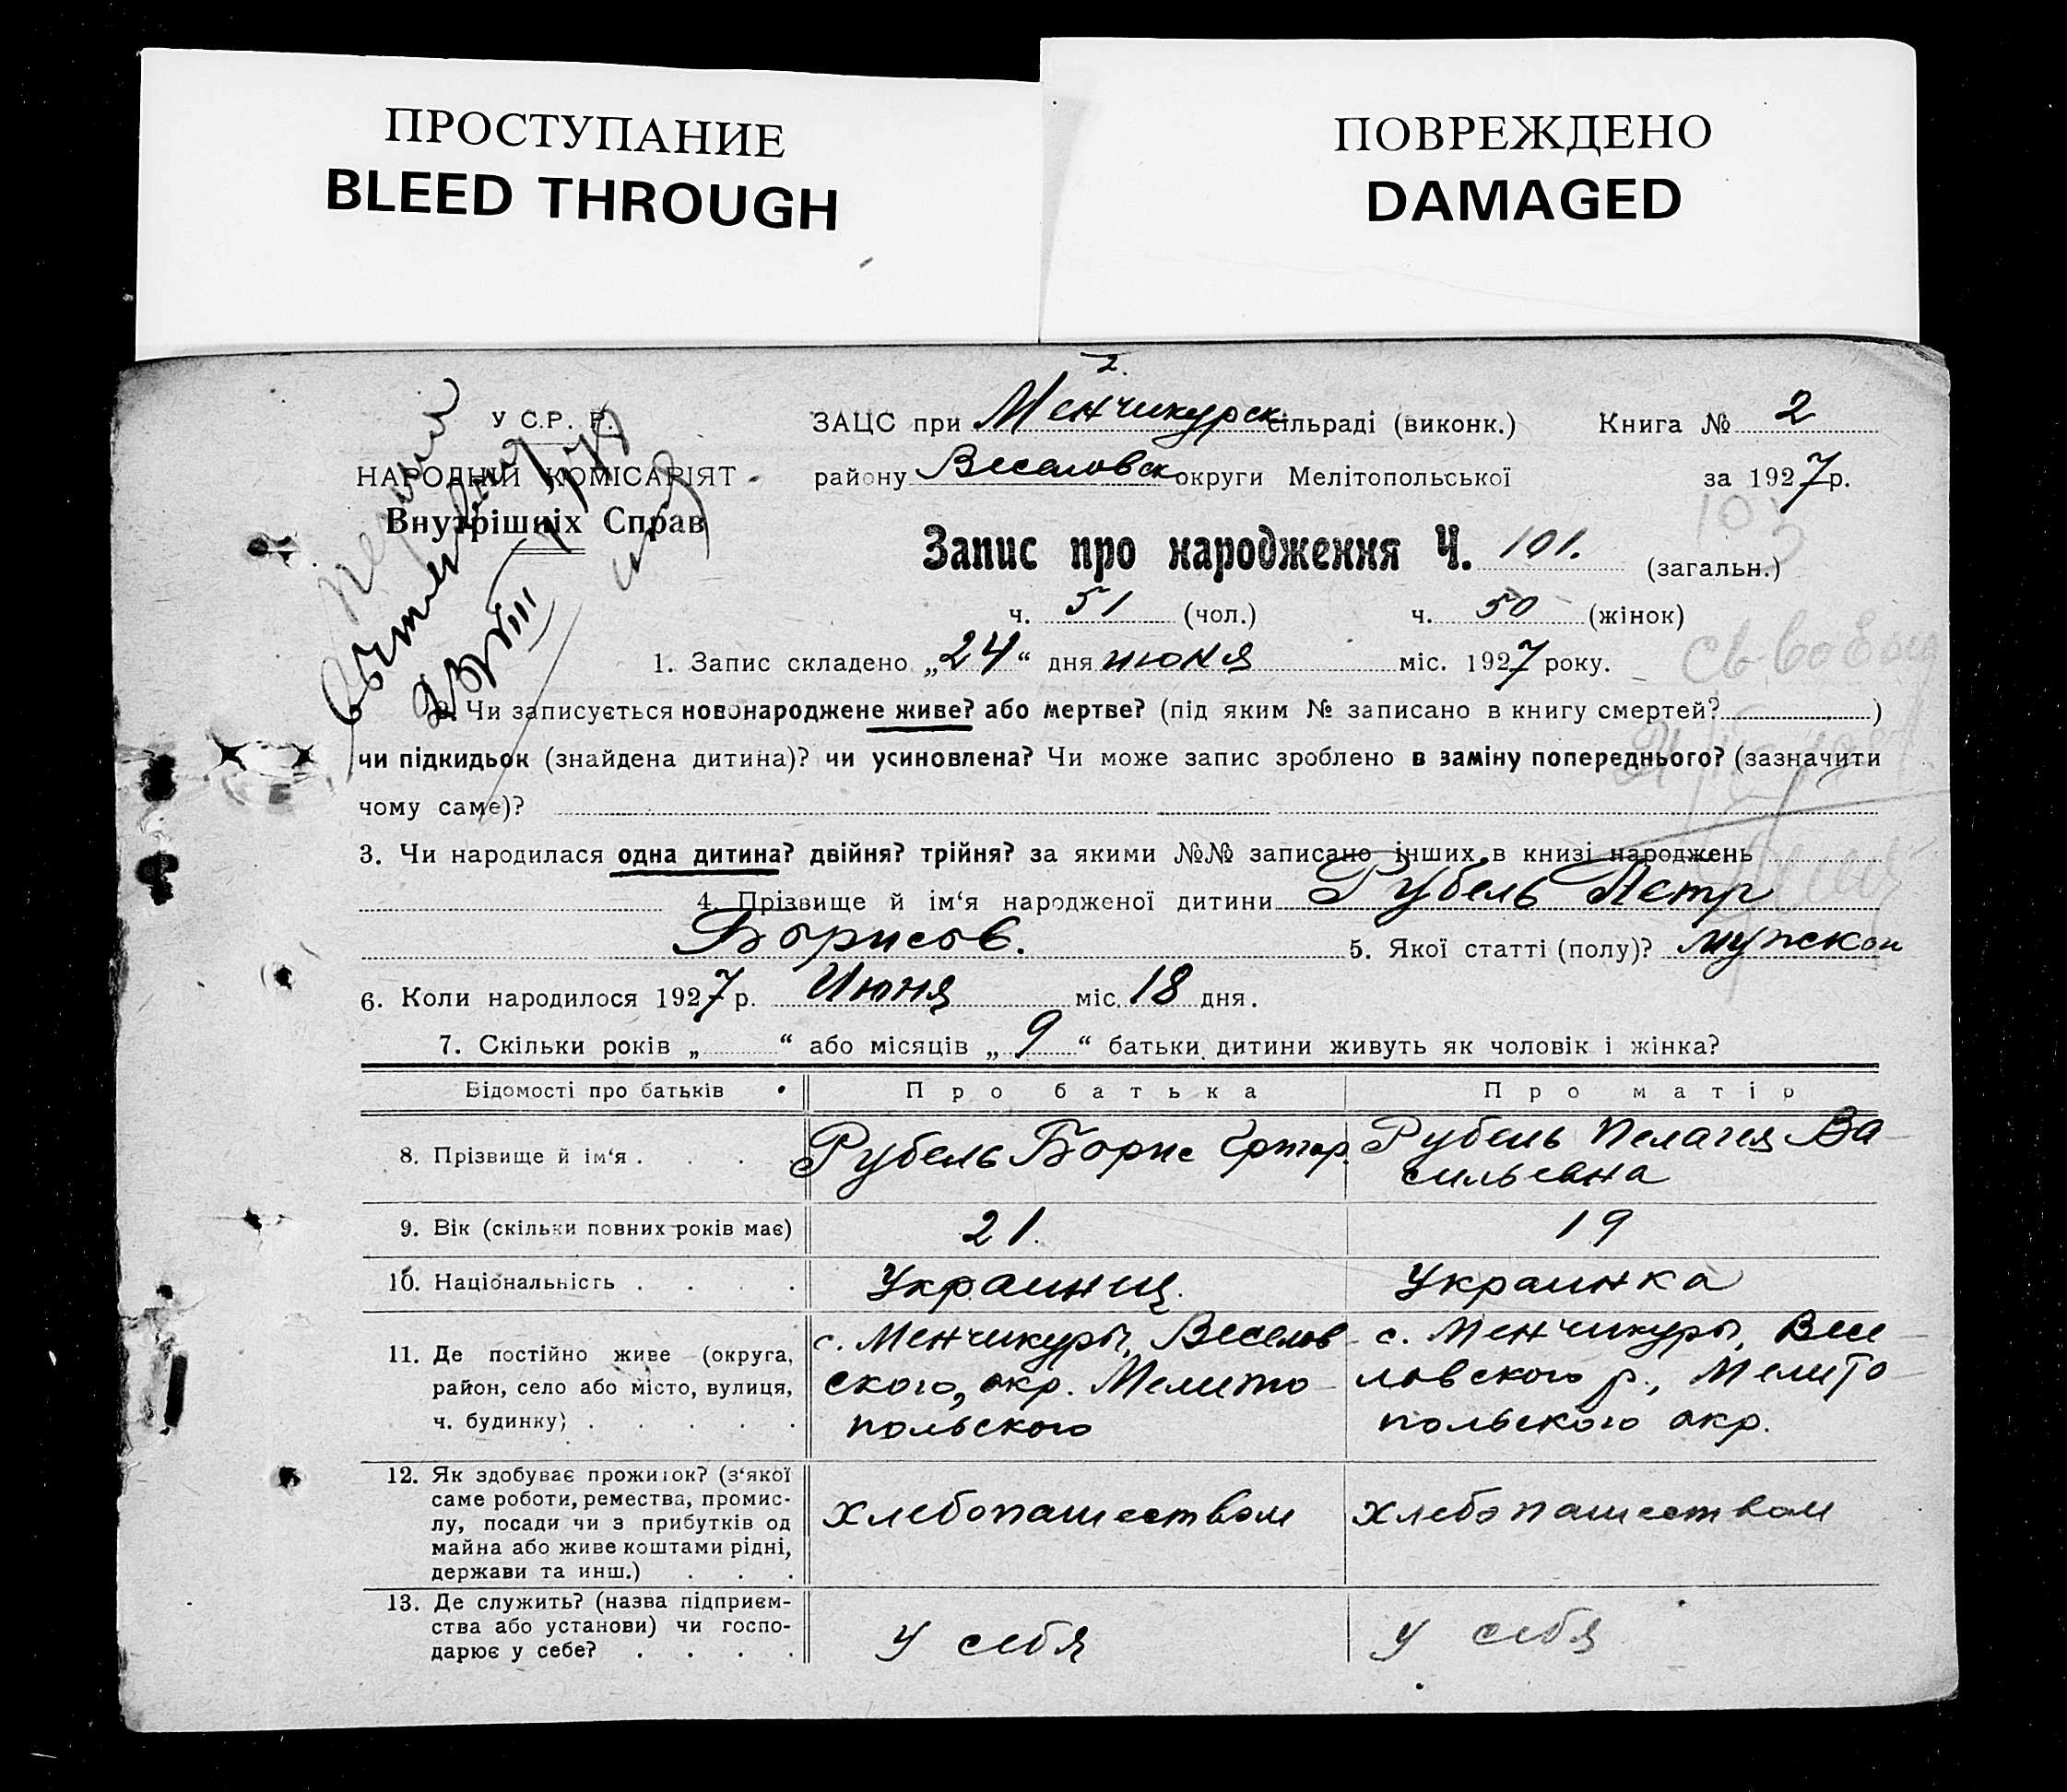 ПРОСТУПАНИЕ
BLEED THROUGH
ПОВРЕЖДЕНО
DAMAGED
2.
У С.Р. Р.
НАРОДНІЙ КОМІСАРІЯТ
Внутрішніх Справ
ЗАЦС при Менчикурск сільраді (виконк.) Книга № 2
району Веселовск округи Мелітопольської за 1927 р.
103
Запис про народження Ч. 101. (загальн.)
ч. 51 (чол.) ч. 50 (жінок)
1. Запис складено „24“ дня июня міс. 1927 року.
2. Чи записується новонароджене живе? або мертве? (під яким № записано в книгу смертей? )
чи підкидьок (знайдена дитина)? чи усиновлена? Чи може запис зроблено в заміну попереднього? (зазначити
чому саме)?
3. Чи народилася одна дитина? двійня? трійня? за якими №№ записано інших в книзі народжень
4. Прізвище й ім‘я народженої дитини Рубель Петр
Борисов. 5. Якої статті (полу)? мужскои
6. Коли народилося 1927 р. Июня міс. 18 дня.
7. Скільки років „ “ або місяців „ 9 “ батьки дитини живуть як чоловік і жінка?
Відомості про батьків Про батька Про матір
8. Прізвище й ім‘я . . . Рубель Борис Рубель Пелагея Ва-
сильевна
9. Вік (скільки повних років має) 21. 19
10. Національність . . . . Украинц. Украинка
11. Де постійно живе (округа, район, село або місто, вулиця, ч. будинку) . . . . .
с. Менчикуры, Веселов-
ского, окр. Мелито-
польского
с. Менчикуры, Весе-
ловского р., Мелито-
польского окр.
12. Як здобуває прожиток? (з‘якої
саме роботи, ремества, промис-
лу, посади чи з прибутків од
майна або живе коштами рідні,
держави та инш.) . . .
хлебопашеством хлебопашеством
13. Де служить? (назва підприєм-
ства або установи) чи госпо-
дарює у себе? . . . .
у себя у себя